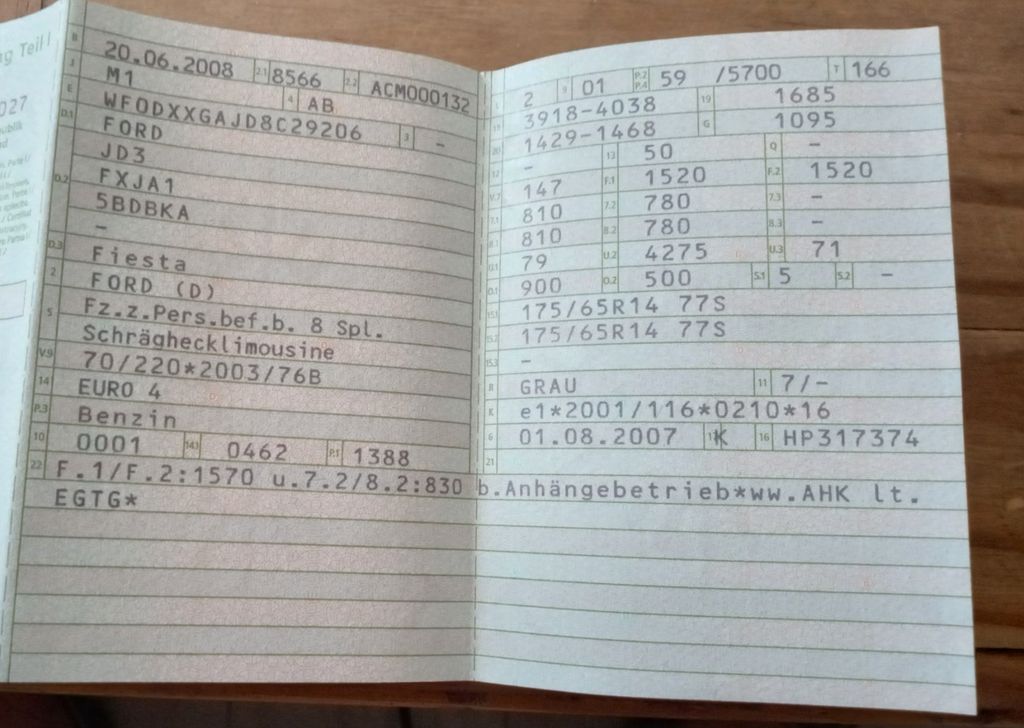 ng Teil I
027
B 20.06.2008 2.1 8566 2.2 ACM000132
J M1 4 AB
E WF0DXXGAJD8C29206 3 -
D.1 FORD
JD3
D.2 FXJA1
5BDBKA
-
D.3 Fiesta
2 FORD (D)
5 Fz.z.Pers.bef.b. 8 Spl.
Schräghecklimousine
V.9 70/220*2003/76B
14 EURO 4
P.3 Benzin
10 0001 14.1 0462 P.1 1388
L 2 9 01 P.2 P.4 59 /5700 T 166
18 3918-4038 19 1685
20 1429-1468 G 1095
12 - 13 50 Q -
V.7 147 F.1 1520 F.2 1520
7.1 810 7.2 780 7.3 -
8.1 810 8.2 780 8.3 -
U.1 79 U.2 4275 U.3 71
O.1 900 O.2 500 S.1 5 S.2 -
15.1 175/65R14 77S
15.2 175/65R14 77S
15.3 -
R GRAU 11 7/-
K e1*2001/116*0210*16
6 01.08.2007 17 K 16 HP317374
21
22 F.1/F.2:1570 u.7.2/8.2:830 b.Anhängebetrieb*ww.AHK lt.
EGTG*